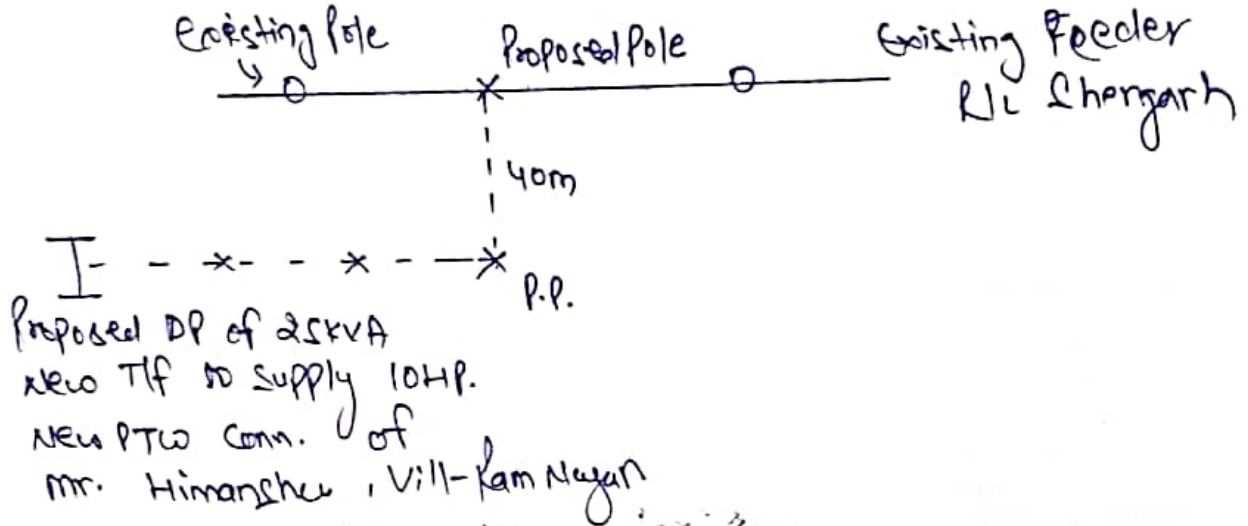 Existing Pole
Proposed Pole
Existing Feeder
Shergarh
40m
P.P.
Proposed DP of 25KVA
New T/f to supply 10HP.
New PTW Conn. of
Mr. Himanshu, Vill-Ram Nagar